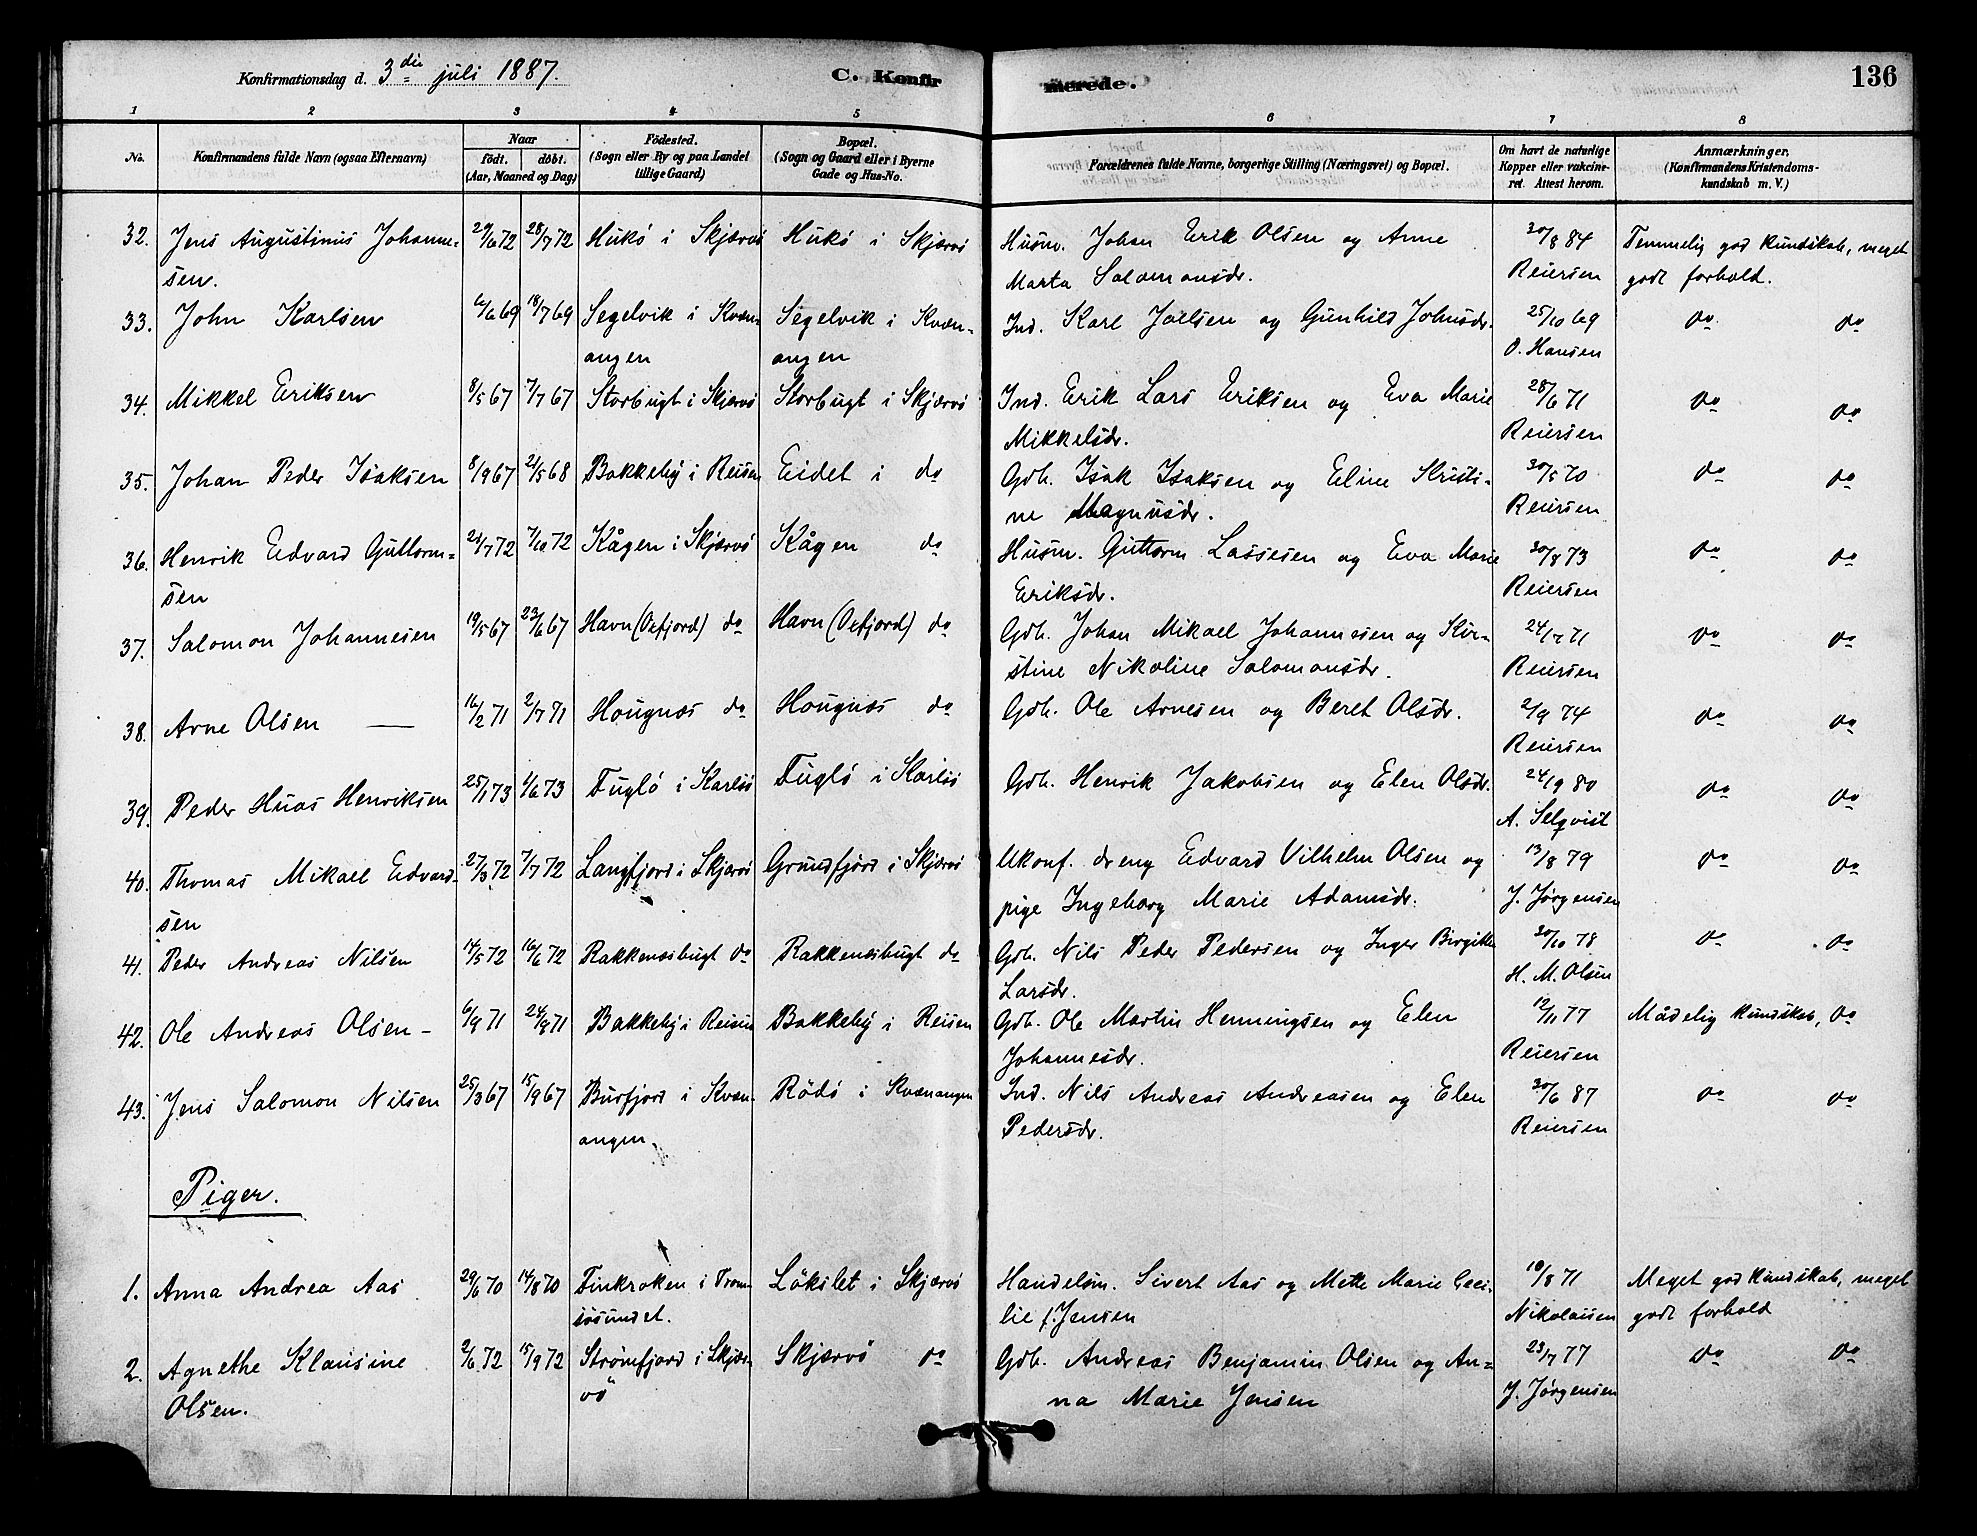 Konfirmationsdag d. 3die juli 1887.
C. Konfirmerede.
136
1 2 3 4 5 6 7 8
No. Konfirmandens fulde Navn (ogsaa Efternavn) Naar födt. döbt. (Aar, Maaned og Dag) Födested. (Sogn eller By og paa Landet tillige Gaard) Bopæl. (Sogn og Gaard eller i Byerne Gade og Hus-No. Forældrenes fulde Navne, borgerlige Stilling (Næringsvei) og Bopæl. Om havt de naturlige Kopper eller vakcineret. Attest herom. Anmærkninger. (Konfirmandens Kristendomskundskab m. V.)
32. Jens Augustinus Johanne- 29/6 72 28/7 72 Hukö i Skjærvö Hukö i Skjærvö Husm. Johan Erik Olsen og Anne 30/8 84 Temmelig god kundskab, meget
sen. Marta Salamonsdr. Reiersen godt forhold.
33. John Karlsen 4/6 69 18/7 69 Segelvik i Kvæn- Segelvik i Kvæn- Ind. Karl Joelsen og Gunhild Johnsdr. 25/10 69 do do
angen angen O. Hansen
34. Mikkel Eriksen 8/5 67 7/7 67 Storbugt i Skjærvö Storbugt i Skjærvö Ind. Erik Lars Eriksen og Eva Marie 28/6 71 do do
Mikkelsdr. Reiersen
35. Johan Peder Isaksen 8/9 67 21/5 68 Bakkeby i Reisen Eidet i do Gdb. Isak Isaksen og Eline Kristi- 30/5 70 do do
ne Magnusdr. Reiersen
36. Henrik Edvard Guttorm- 21/7 72 7/10 72 Kågen i Skjærvö Kågen do Husm. Guttorm Lassesen og Eva Marie 30/8 73 do do
sen Eriksdr. Reiersen
37. Salomon Johannesen 19/5 67 23/6 67 Havn (Oxfjord) do Havn (Oxfjord) do Gdb. Johan Mikael Johannesen og Kir- 24/7 71 do do
stine Nikoline Salomonsdr. Reiersen
38. Arne Olsen — 16/2 71 2/7 71 Hougnæs do Hougnæs do Gdb. Ole Arnesen og Beret Olsdr. 2/9 74 do do
Reiersen
39. Peder Huas Henriksen 25/1 73 1/6 73 Fuglö i Karlsö Fuglö i Karlsö Gdb. Henrik Jakobsen og Elen Olsdr. 24/9 80 do do
A. Selqvist
40. Thomas Mikael Edvard- 27/3 72 7/7 72 Langfjord i Skjærvö Grundfjord i Skjærvö Ukonf. dreng Edvard Vilhelm Olsen og 13/8 79 do do
sen pige Ingeborg Marie Adamsdr. J. Jørgensen
41. Peder Andreas Nilsen 14/5 72 16/6 72 Rakkenæsbugt do Rakkenæsbugt do Gdb. Nils Peder Pedersen og Inger Birgitte 30/10 78 do do
Larsdr. H. M. Olsen
42. Ole Andreas Olsen - 6/9 71 24/9 71 Bakkeby i Reisen Bakkeby i Reisen Gdb. Ole Martin Henningsen og Elen 12/11 77 Mådelig kundskab, do
Johannesdr. Reiersen
43. Jens Salomon Nilsen 25/3 67 15/9 67 Burfjord i Kvæn- Rödö i Kvænangen Ind. Nils Andreas Andreasen og Elen 30/6 87 do do
angen Pedersdr. Reiersen
Piger.
1. Anna Andrea Aas 29/6 70 14/8 70 Finkroken i Trom- Lökslet i Skjærvö Handelsm. Sivert Aas og Mette Marie Ceci- 10/8 71 Meget god kundskab, meget
sösundet. lie f. Jensen Nikolaisen godt forhold
2. Agnethe Klausine 2/6 72 15/9 72 Strömfjord i Skjær- Skjærvö do Gdb. Andreas Benjamin Olsen og An- 23/7 77 do do
Olsen. vö na Marie Jensen J. Jørgensen